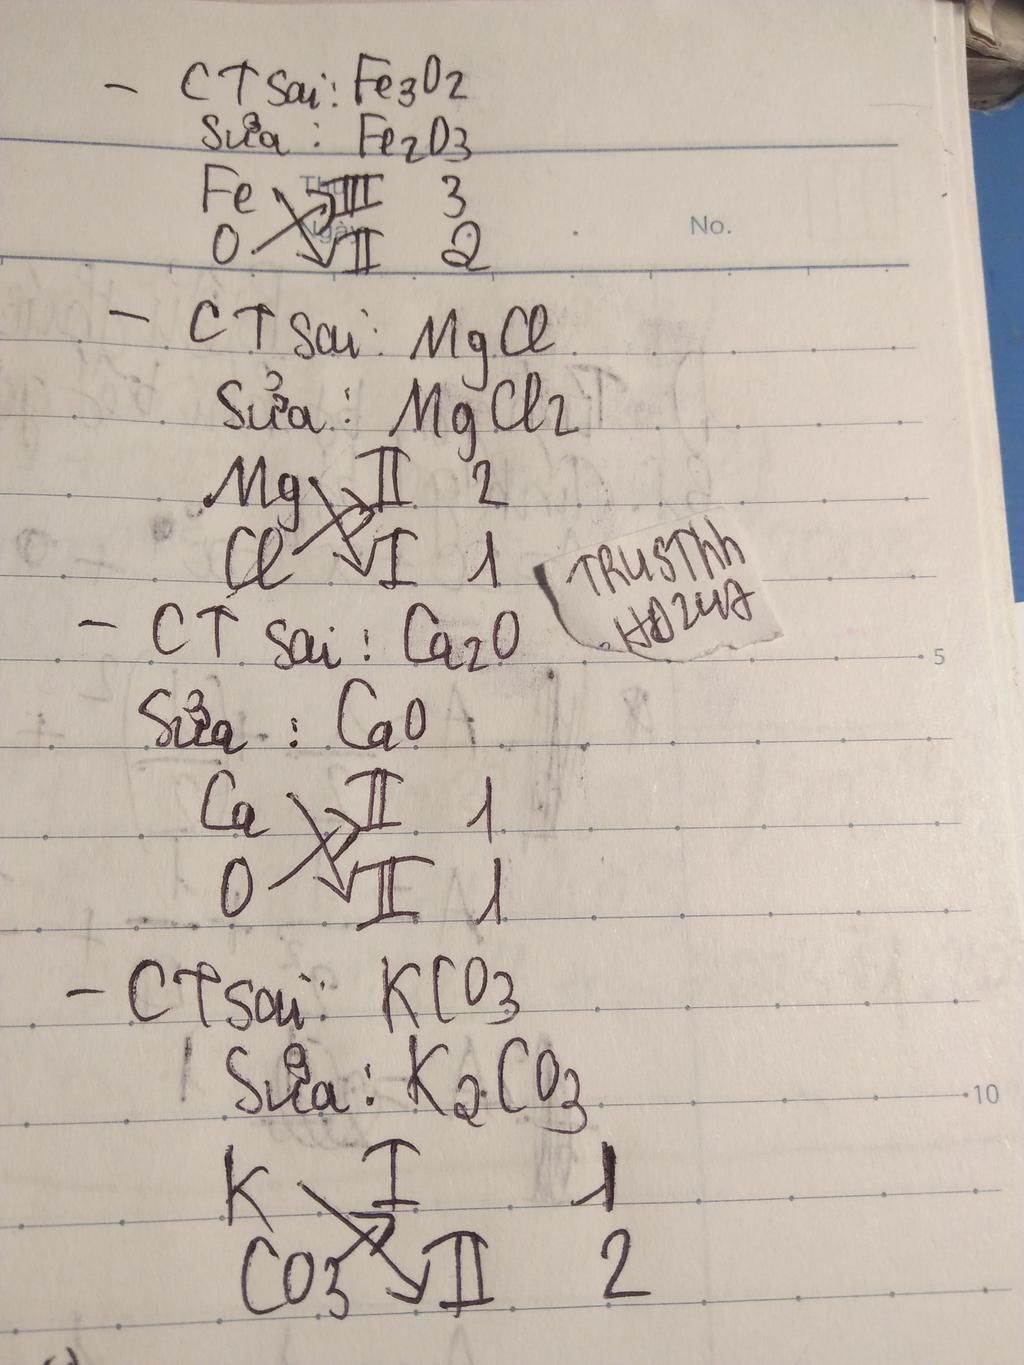 - CT sai: Fe3O2
Sửa : Fe2O3
Fe III 3
O II 2
No.
- CT sai: MgCl
Sửa : MgCl2
Mg II 2
Cl I 1
TRUSThh
- CT sai : Ca2O
5
Sửa : CaO
Ca II 1
O II 1
- CT sai: KCO3
Sửa : K2CO3
10
K I 1
CO3 II 2